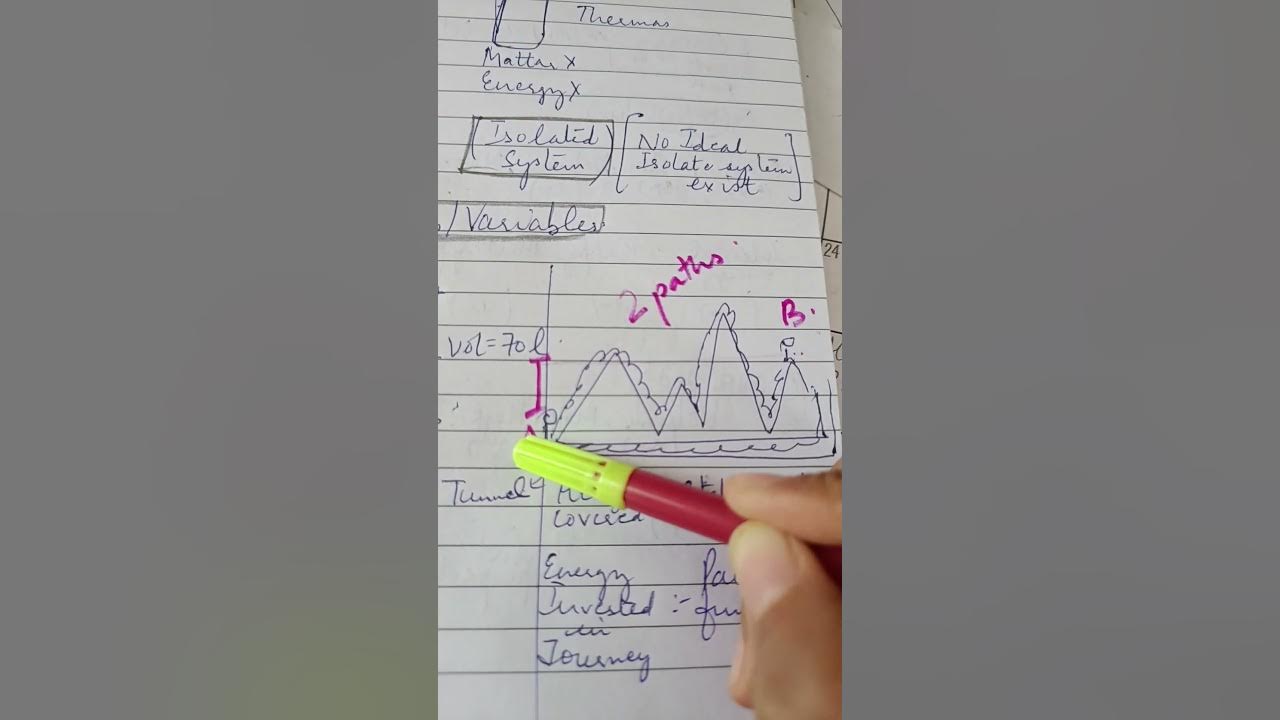 Thermas
Matter X
Energy X
Isolated
System
No Ideal
Isolate system
exist
/Variables
24
2 paths
B.
Vol = 70 l
A
Tunnel
Covered
Energy
Invested :-
in
Journey